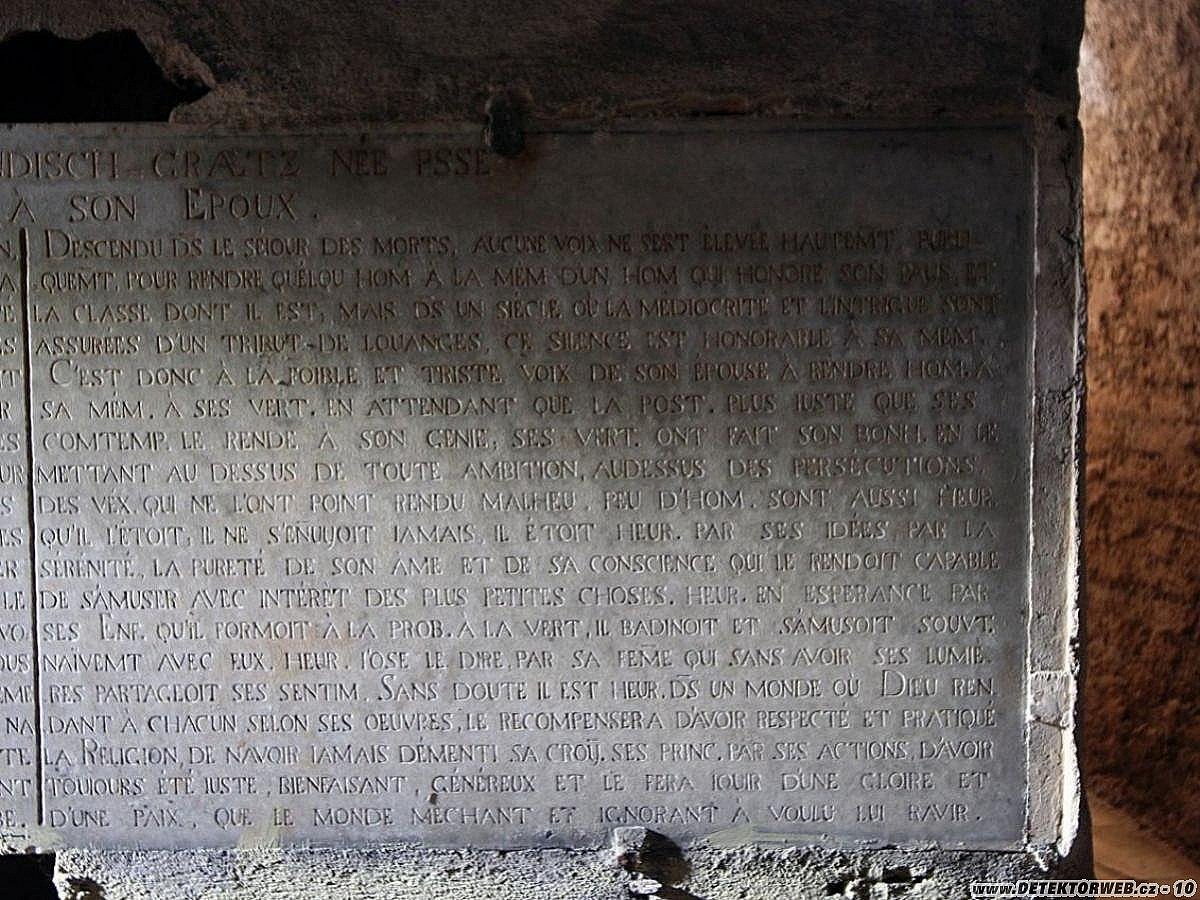 NDISCH-GRÆTZ NÉE PSSE
À SON EPOUX.
DESCENDU DS LE SÉJOUR DES MORTS, AUCUNE VOIX NE SEST ÉLEVÉE HAUTEMT, PUBLI
QUEMT, POUR RENDRE QUELQU HOM À LA MÉM DUN HOM QUI HONORE SON PAUS, ET
LA CLASSE DONT IL EST, MAIS DS UN SIÉCLE OÙ LA MEDIOCRITÉ ET L'INTRIGUE SONT
ASSURÉES D'UN TRIBUT DE LOUANGES, CE SILENCE EST HONORABLE À SA MÉM.
C'EST DONC À LA FOIBLE ET TRISTE VOIX DE SON ÉPOUSE À RENDRE HOM. À
SA MÉM. À SES VERT. EN ATTENDANT QUE LA POST. PLUS IUSTE QUE SES
COMTEMP. LE RENDE À SON GENIE, SES VERT. ONT FAIT SON BONH. EN LE
METTANT AU DESSUS DE TOUTE AMBITION, AUDESSUS DES PERSÉCUTIONS,
DES VEX. QUI NE L'ONT POINT RENDU MALHEU. PEU D'HOM. SONT AUSSI HEUR.
QU'IL L'ÉTOIT, IL NE S'EÑUIJOIT IAMAIS, IL ÉTOIT HEUR. PAR SES IDÉES, PAR LA
SÉRÉNITÉ, LA PURETÉ DE SON AME ET DE SA CONSCIENCE QUI LE RENDOIT CAPABLE
DE S'AMUSER AVEC INTÉRÊT DES PLUS PETITES CHOSES. HEUR. EN ESPERANCE PAR
SES ENF. QU'IL FORMOIT À LA PROB. A LA VERT, IL BADINOIT ET S'AMUSOIT SOUVT.
NAÏVEMT AVEC EUX. HEUR. I'OSE LE DIRE, PAR SA FEM̃E QUI SANS AVOIR SES LUMIÉ.
RES PARTAGEOIT SES SENTIM. SANS DOUTE IL EST HEUR. DS UN MONDE OÙ DIEU REN.
DANT À CHACUN SELON SES OEUVRES, LE RECOMPENSERA D'AVOIR RESPECTÉ ET PRATIQUÉ
LA RELIGION, DE N'AVOIR IAMAIS DÉMENTI SA CROIJ. SES PRINC. PAR SES ACTIONS, D'AVOIR
TOUIOURS ÉTÉ IUSTE, BIENFAISANT, GÉNÉREUX ET LE FERA IOUIR D'UNE GLOIRE ET
D'UNE PAIX, QUE LE MONDE MECHANT ET IGNORANT À VOULU LUI RAVIR.
www.DETEKTORWEB.cz - 10